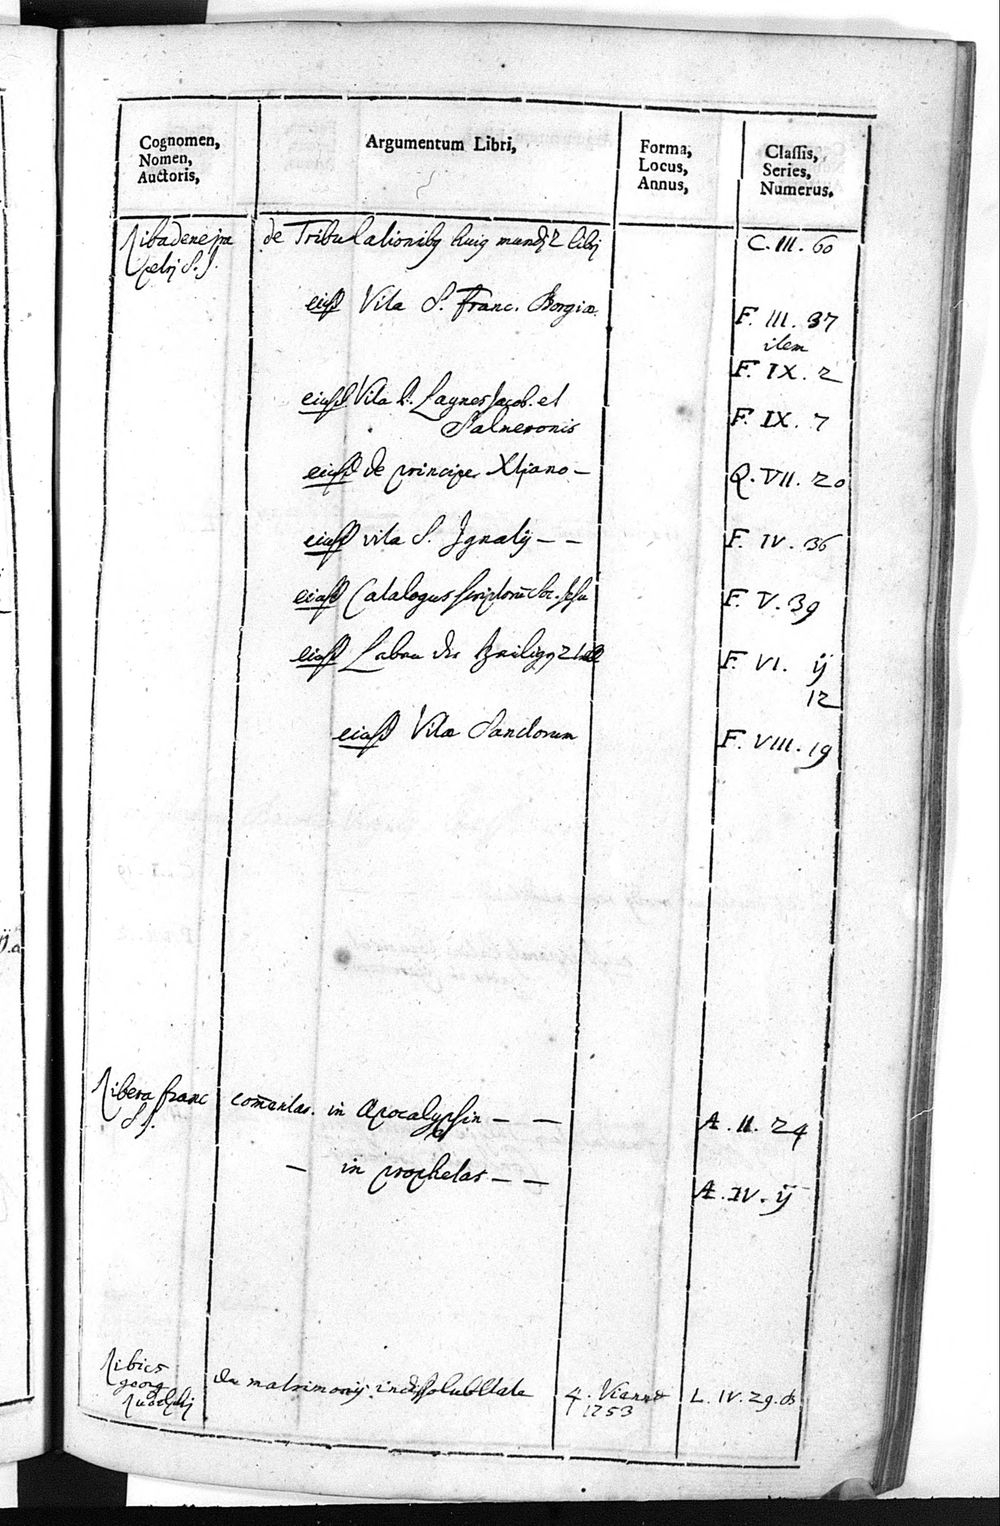 Cognomen,
Nomen,
Auctoris,
Argumentum Libri,
Forma,
Locus,
Annus,
Classis,
Series,
Numerus.
Ribadeneira
petri S.J.
de Tribulationibq huiq mundi 2 libri
C. III. 60
eiusd Vita S. Franc. Borgiæ
F. III. 37
item
F. IX. 2
eiusd Vita P. Laynes Jacob. et
Salmeronis
F. IX. 7
eiusd de principe Xtiano -
Q. VII. 20
eiusd vita S. Ignatij - -
F. IV. 36
eiusd Catalogus scriptorum Soc. Jesu
F. V. 39
eiusd Leben der Heiligen 2
F. VI. ij
12
eiusd Vitæ Sanctorum
F. VIII. 19
Ribera franc
S.J.
comentar. in Apocalypsin - -
A. II. 24
- in prophetas - -
A. IV. ij
Ribics
georg
Rudolphi
de matrimonij indissolubilitate
4. Viennæ
1753
L. IV. 29.